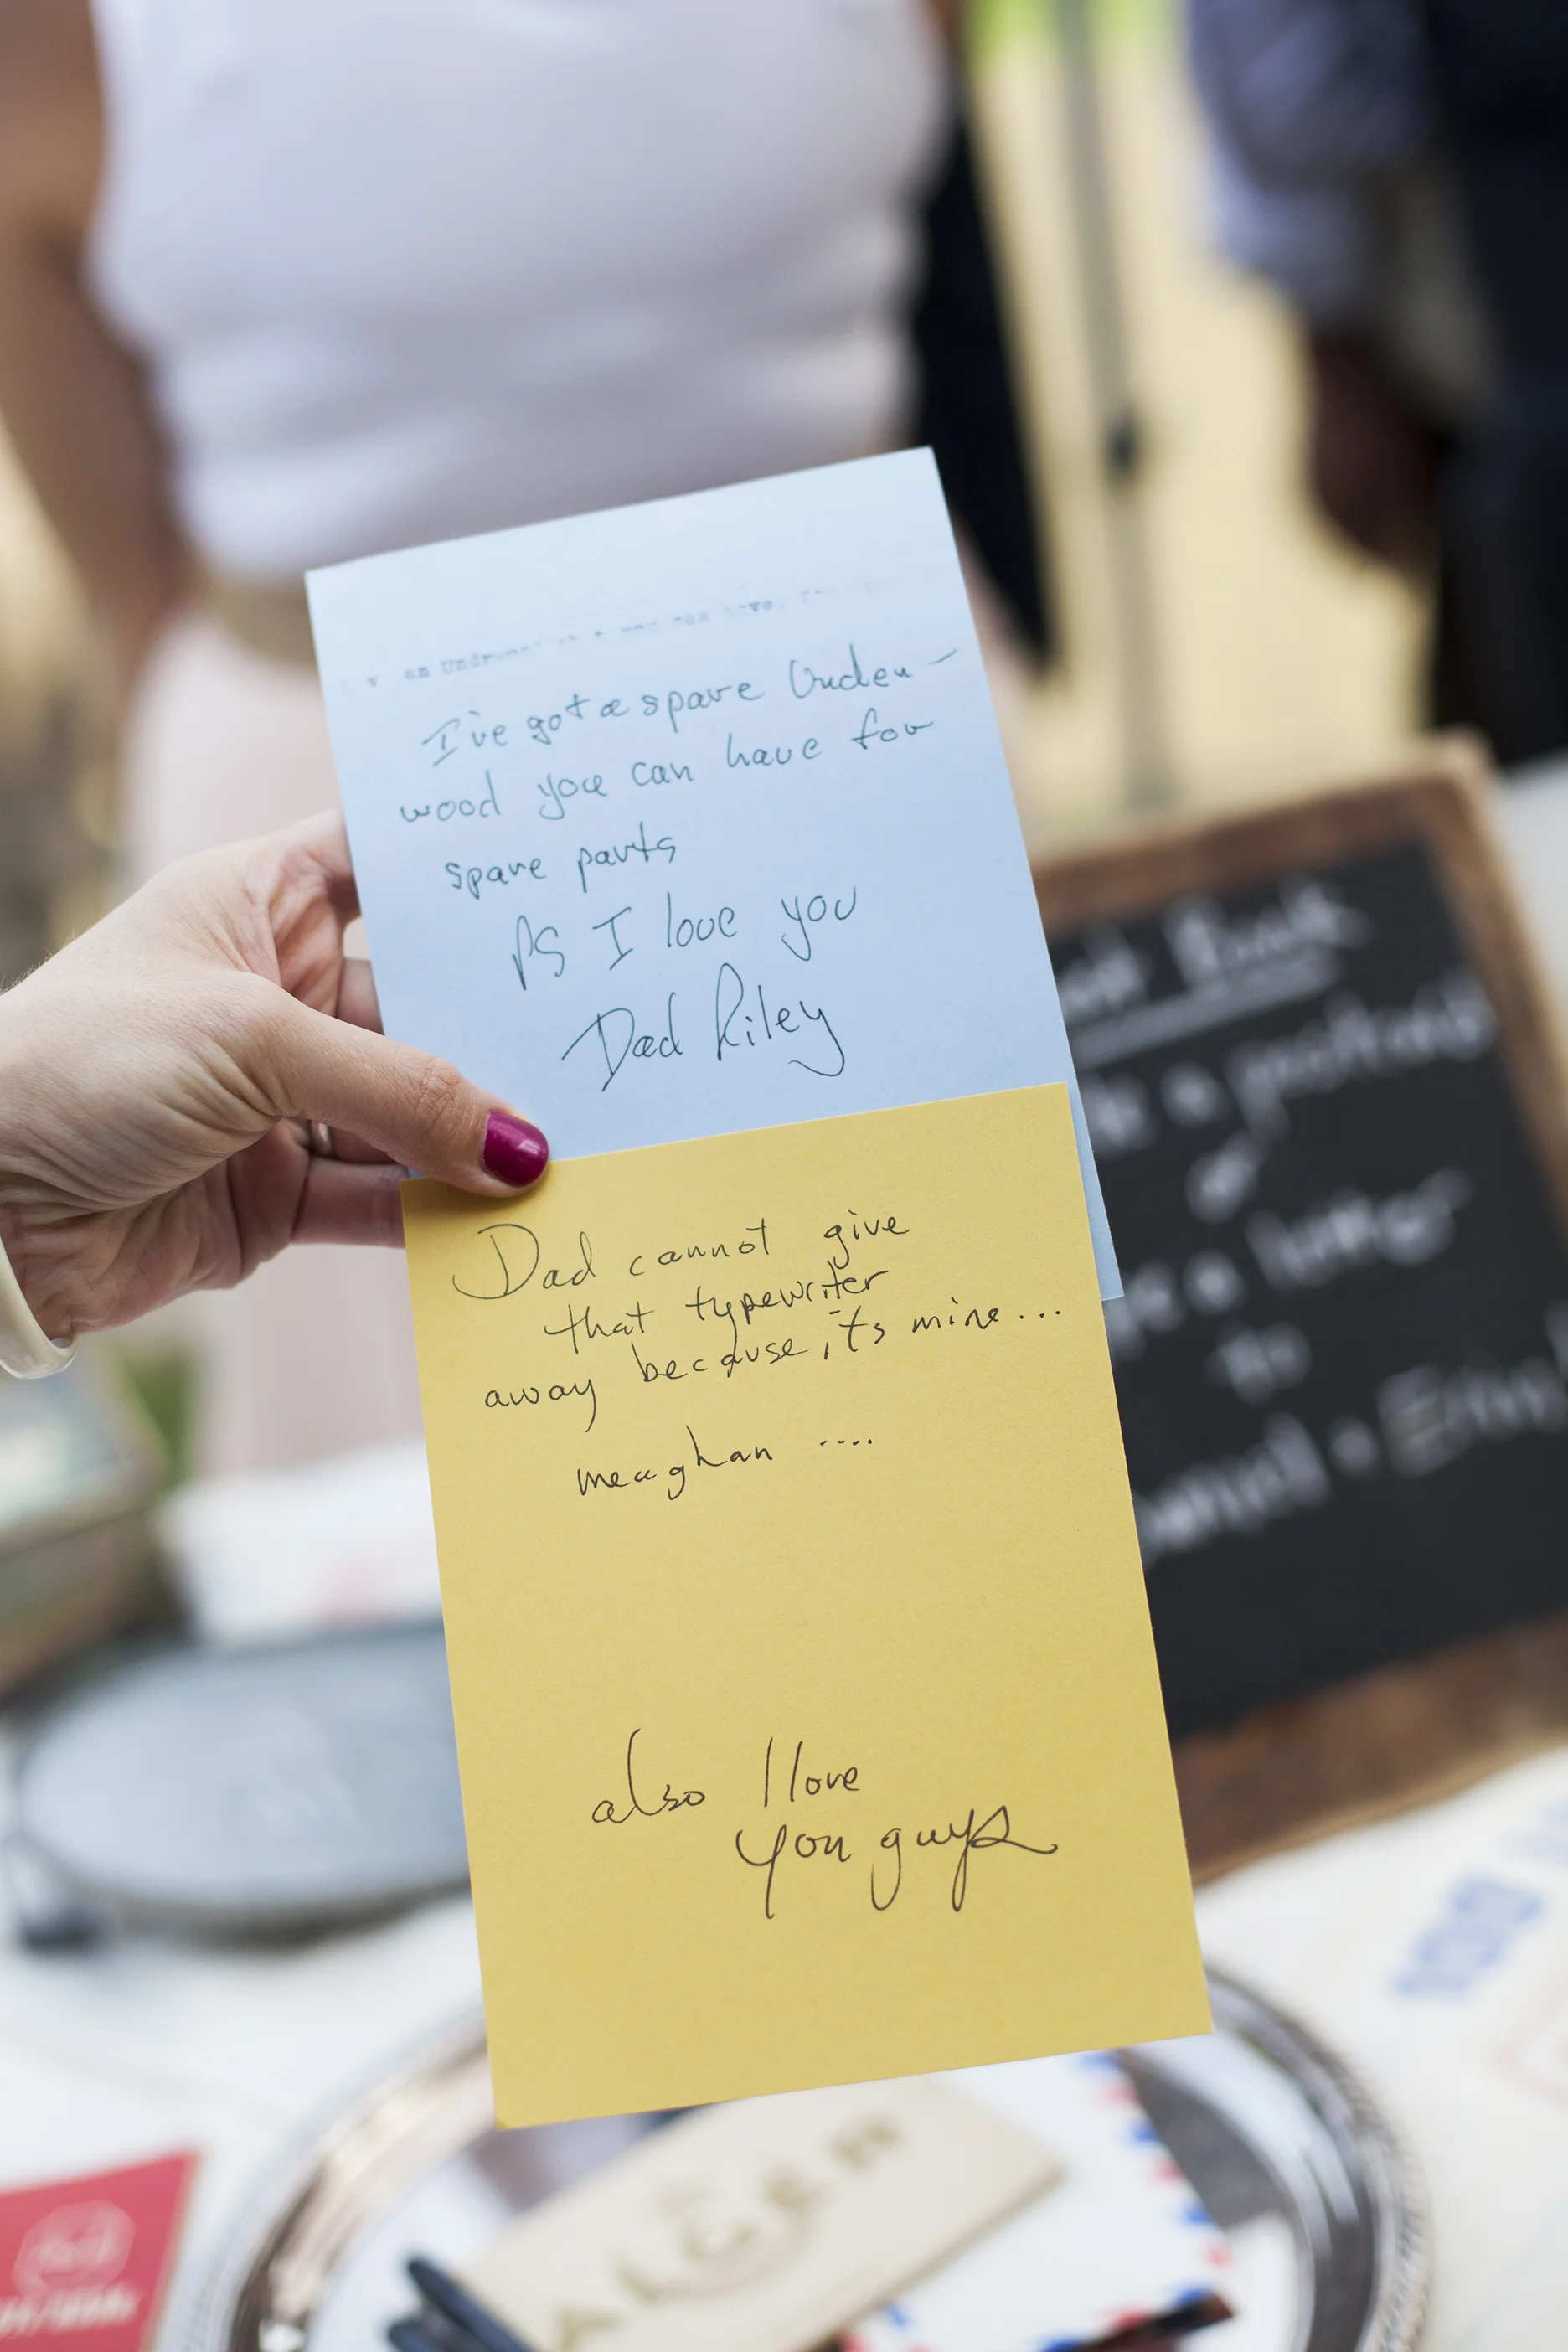 an Und
can have
I've got a spare Under-
wood you can have for
spare parts
PS I love you
Dad Riley
Dad cannot give
that typewriter
away because it's mine...
meaghan ....
also I love
you guys
Book
a postcard
or
a letter
to
Daniel + Erin
ALGER